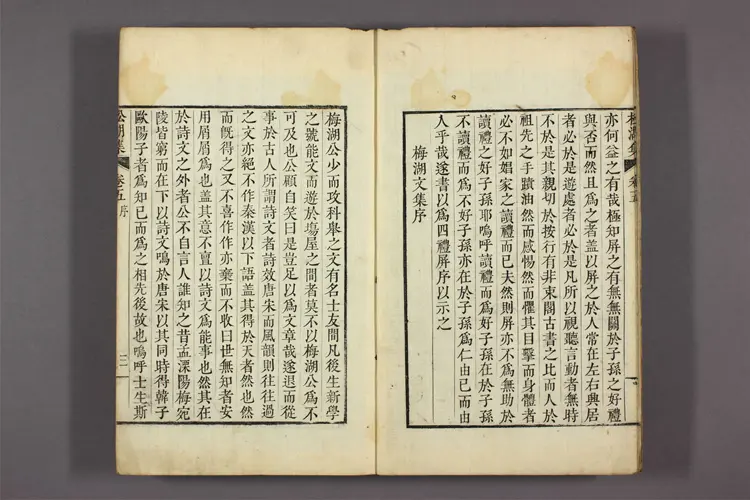 亦何益之有哉極知屏之有無無關於子孫之好禮
與否而然且爲之者盖以屏之於人常在左右興居
者必於是遊處者必於是凡所以視聽言動者無時
不於是其親切於按行有非束閣古書之比而人於
祖先之手蹟油然而感惕然而懼其目擊而身體者
必不如娼家之讀禮而已夫然則屏亦不爲無助於
讀禮之好子孫耶嗚呼讀禮而爲好子孫在於子孫
不讀禮而爲不好子孫亦在於子孫爲仁由已而由
人乎哉遂書以爲四禮屏序以示之
梅湖文集序
梅湖公少而攻科舉之文有名士友間凡後生新學
之號能文而遊於塲屋之間者莫不以梅湖公爲不
可及也公顧自笑曰是豈足以爲文章哉遂退而從
事於古人所謂詩文者詩效唐宋而風韻則往往過
之文亦絕不作秦漢以下語盖其得於天者然也然
而旣得之又不喜作作亦棄而不收曰世無知者安
用屑屑爲也盖其意不亶以詩文爲能事也然其在
於詩文之外者公不自言人誰知之昔孟溧陽梅宛
陵皆窮而在下以詩文鳴於唐宋以其同時得韓子
歐陽子者爲知已而爲之相先後故也嗚呼士生斯
集
卷五
序